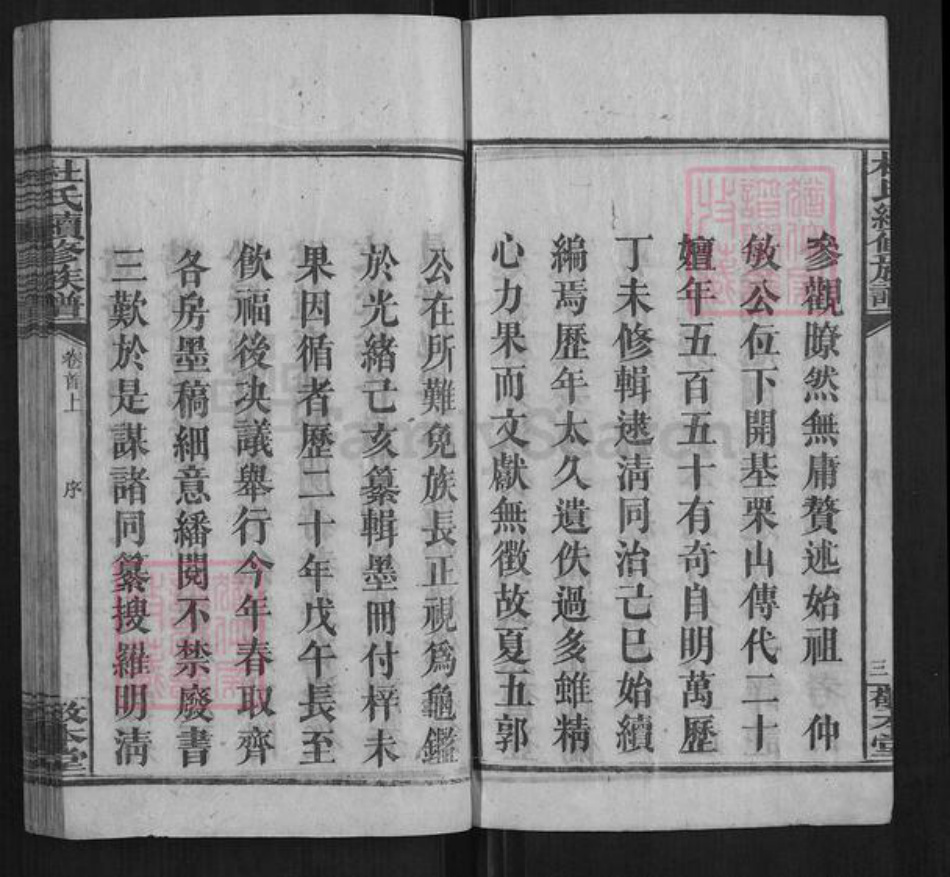 杜氏續修族譜
三
參觀瞭然無庸贅述始祖　仲
敏公位下開基栗山傳代二十
嬗年五百五十有奇自明萬歷
丁未修輯逮淸同治己巳始續
編焉歷年太久遺佚過多雖精
心力果而文獻無徵故夏五郭
公在所難免族長正視爲龜鑑
於光緖己亥纂輯墨冊付梓未
果因循者歷二十年戊午長至
飲福後决議舉行今年春取齊
各房墨稿細意繙閱不禁廢書
三歎於是謀諸同纂搜羅明淸
杜氏續修族譜
卷首上
序
FamilySearch